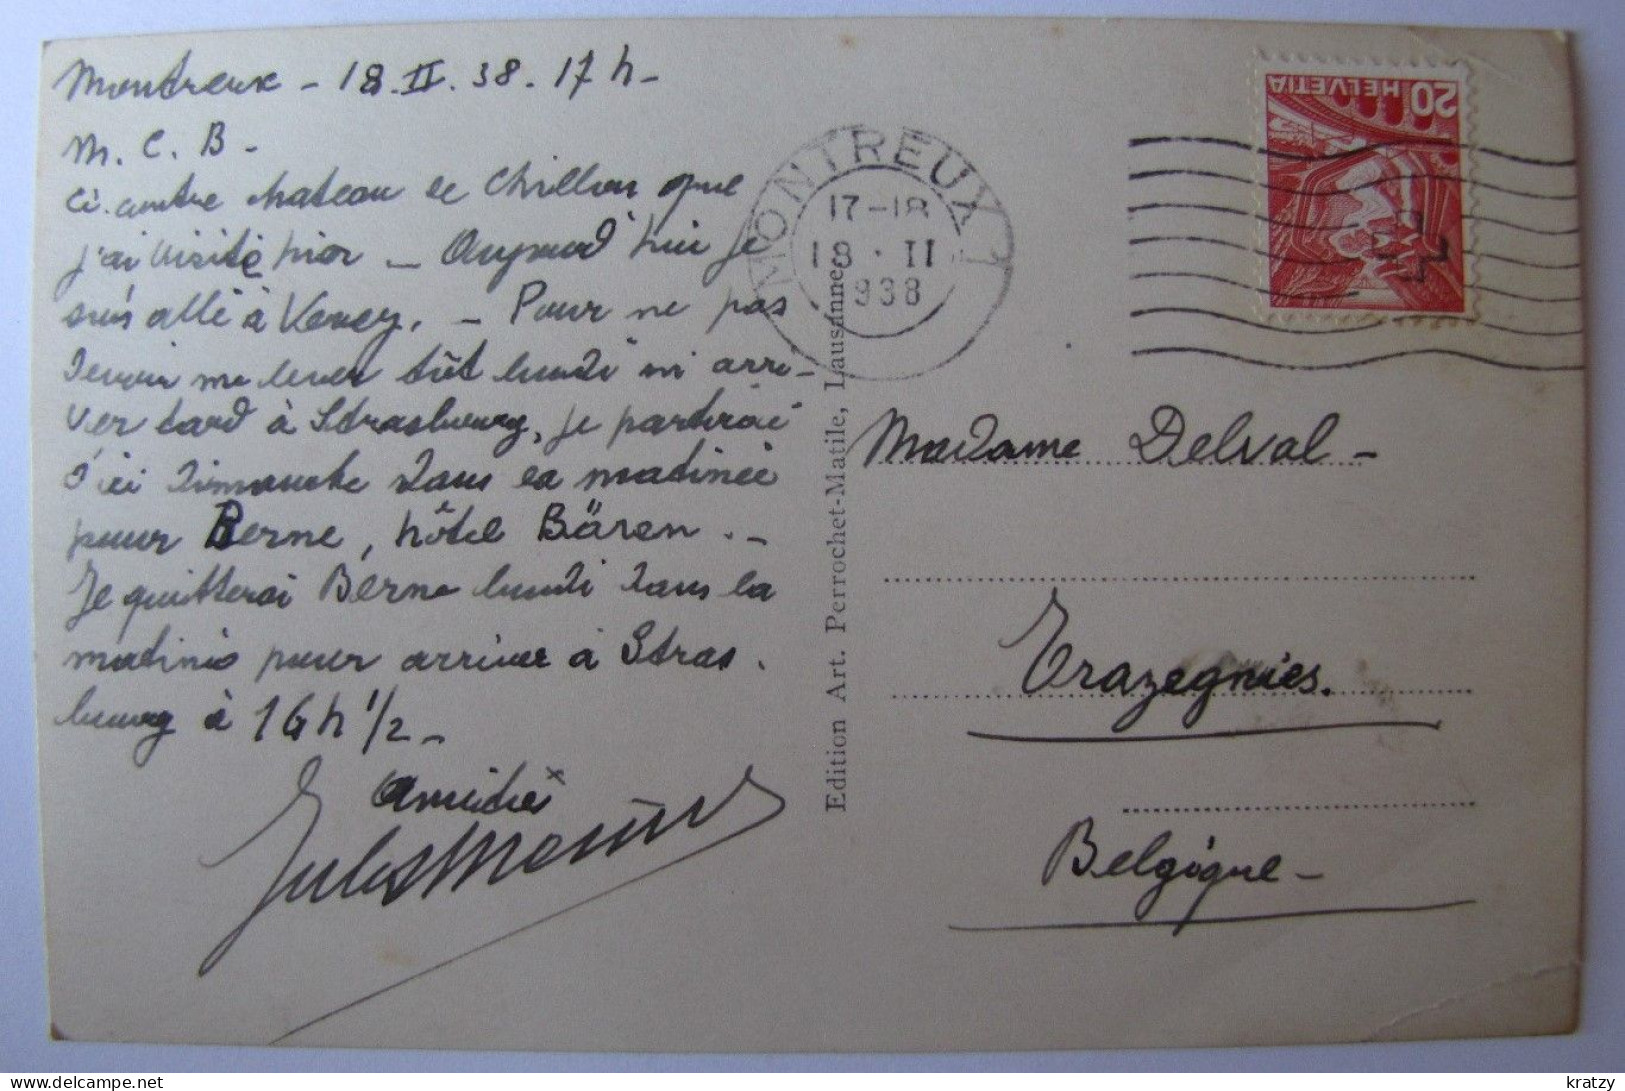 Montreux - 18.II.38.17h-
M.C.B-
Ci-contre château de Chillon que
j'ai visité hier - Aujourd'hui je
suis allé à Vevey. - Pour ne pas
devoir me lever tôt lundi ni arri-
ver tard à Strasbourg, je partirai
d'ici Dimanche dans la matinée
pour Berne, hôtel Bären.-
Je quitterai Berne lundi dans la
matinée pour arriver à Stras.
bourg à 16h 1/2-
Amitiés
Jules
Edition Art. Perrochet-Matile, Lausanne
MONTREUX 1
17-18
18·II
938
HELVETIA
20
Madame Delval-
Trazegnies.
Belgique-
kratzy